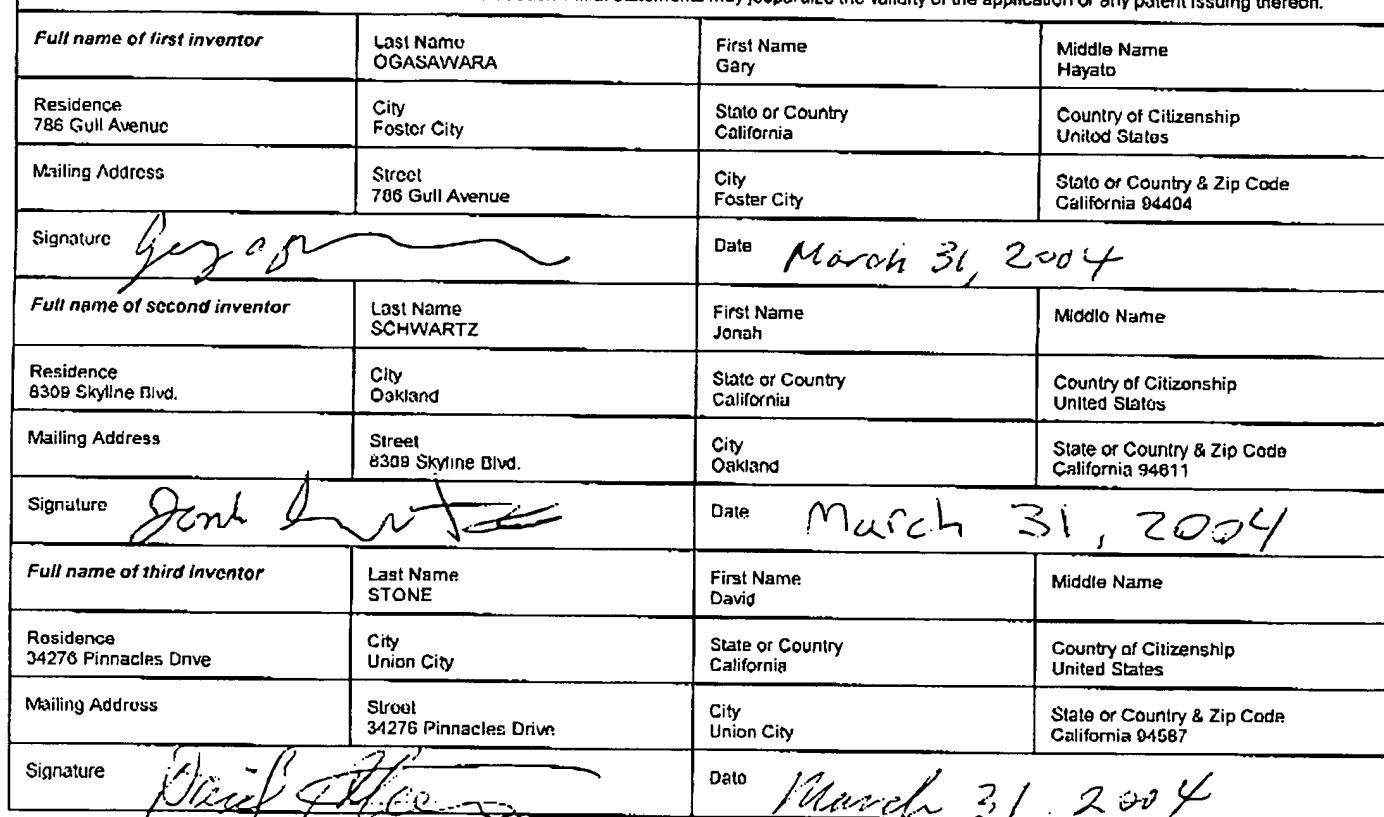 may jeopardize the validity of the application or any patent issuing thereon.
Full name of first inventor
Last Name
OGASAWARA
First Name
Gary
Middle Name
Hayato
Residence
786 Gull Avenue
City
Foster City
State or Country
California
Country of Citizenship
United States
Mailing Address
Street
786 Gull Avenue
City
Foster City
State or Country & Zip Code
California 94404
Signature
Date March 31, 2004
Full name of second inventor
Last Name
SCHWARTZ
First Name
Jonah
Middle Name
Residence
8309 Skyline Blvd.
City
Oakland
State or Country
California
Country of Citizenship
United States
Mailing Address
Street
8309 Skyline Blvd.
City
Oakland
State or Country & Zip Code
California 94611
Signature
Date March 31, 2004
Full name of third inventor
Last Name
STONE
First Name
David
Middle Name
Residence
34276 Pinnacles Drive
City
Union City
State or Country
California
Country of Citizenship
United States
Mailing Address
Street
34276 Pinnacles Drive
City
Union City
State or Country & Zip Code
California 94587
Signature David
Date March 31, 2004